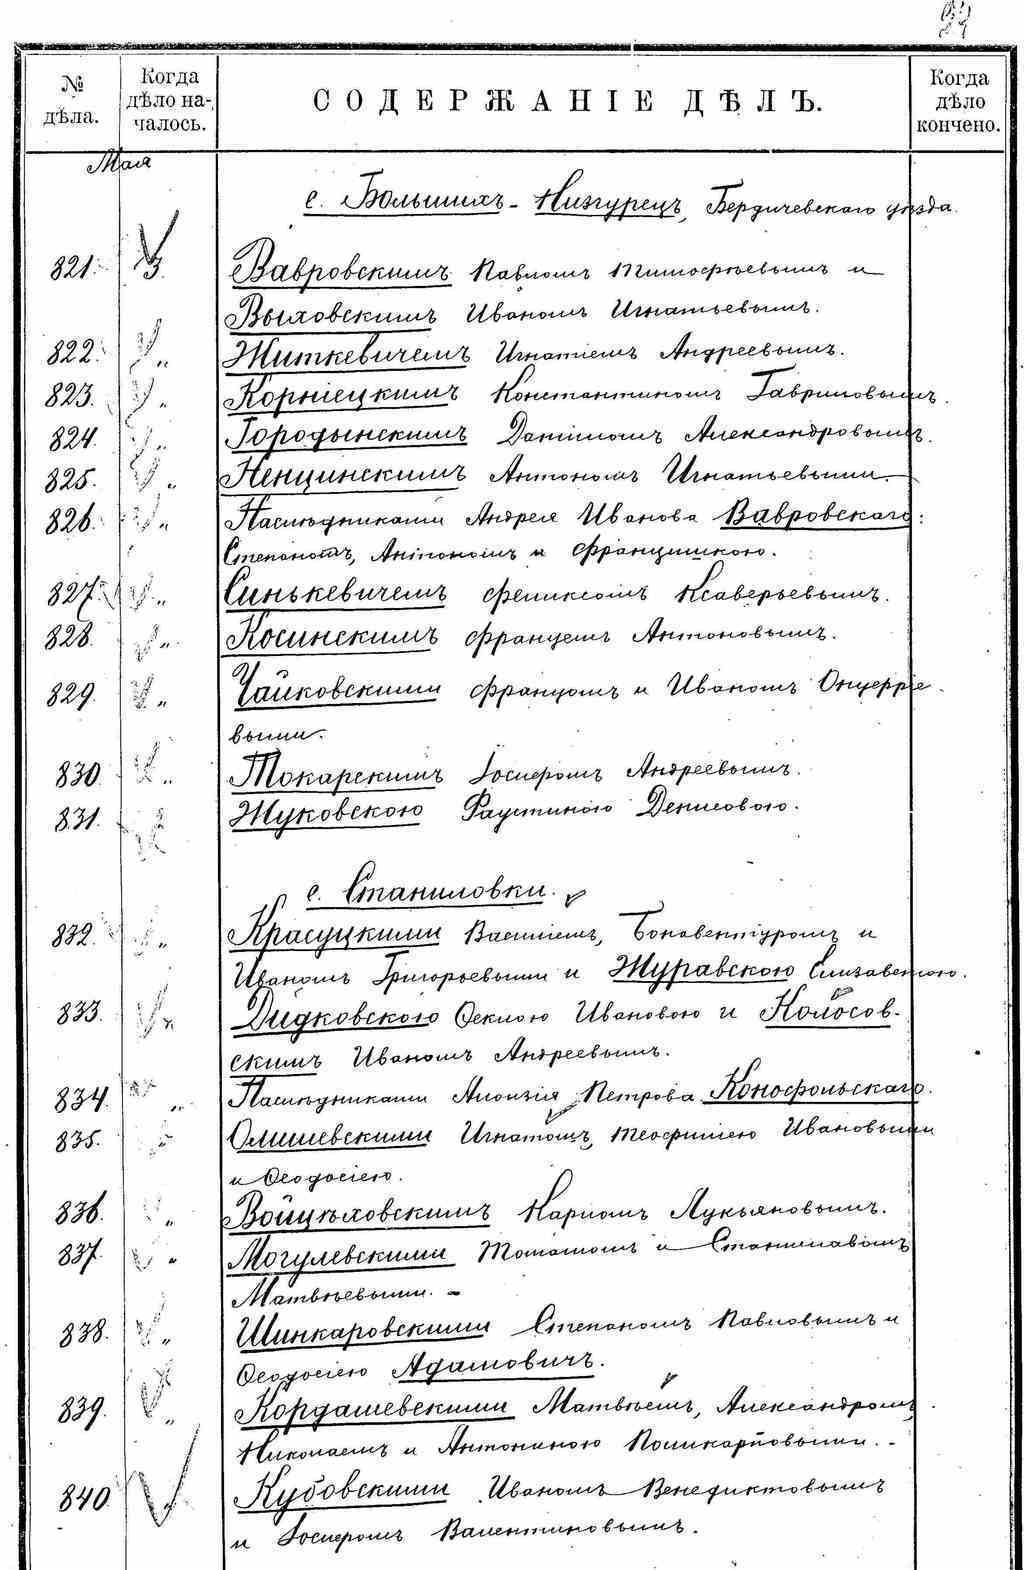 № дѣла.
Когда дѣло началось.
СОДЕРЖАНІЕ ДѢЛЪ.
Когда дѣло кончено.
Мая
с. Большихъ-Низгурецъ, Бердичевскаго уѣзда.
821. 3. Вавровскимъ Павломъ Тимофѣевымъ и
Выховскимъ Иваномъ Игнатьевымъ.
822. „ Житкевичемъ Игнатіемъ Андреевымъ.
823. „ Корніецкимъ Константиномъ Гавриловымъ.
824. „ Городынскимъ Даніиломъ Александровымъ.
825. „ Ненцинскимъ Антономъ Игнатьевымъ.
826. „ Наслѣдниками Андрея Иванова Вавровскаго:
Степаномъ, Антономъ и Францишкою.
827. „ Синькевичемъ Феликсомъ Ксаверьевымъ.
828. „ Косинскимъ Францемъ Антоновымъ.
829. „ Чайковскими Францомъ и Иваномъ Онуфріе-
выми.
830. „ Токарскимъ Іосифомъ Андреевымъ.
831. Жуковскою Фаустиною Денисовою.
с. Станиловки.
832. „ Красуцкими Василіемъ, Бонавентуромъ и
Иваномъ Григорьевыми и Журавскою Елизаветою.
833. „ Дидковскою Феклою Ивановою и Колосов-
скимъ Иваномъ Андреевымъ.
834. „ Наслѣдниками Алоизія Петрова Конофольскаго.
835. Олишевскими Игнатомъ, Теофилією Ивановыми
и Ѳеодосіею.
836. „ Войцѣховскимъ Карломъ Лукьяновымъ.
837. „ Могулевскими Томашомъ и Станиславомъ
Матвѣевыми. -
838. „ Шинкаровскими Степаномъ Павловымъ и
Ѳеодосіею Адамовичъ.
839. „ Кордашевскими Матвѣемъ, Александромъ,
Николаемъ и Антониною Поликарповыми. -
840. Кубовскими Иваномъ Венедиктовымъ
и Іосифомъ Валентиновымъ.